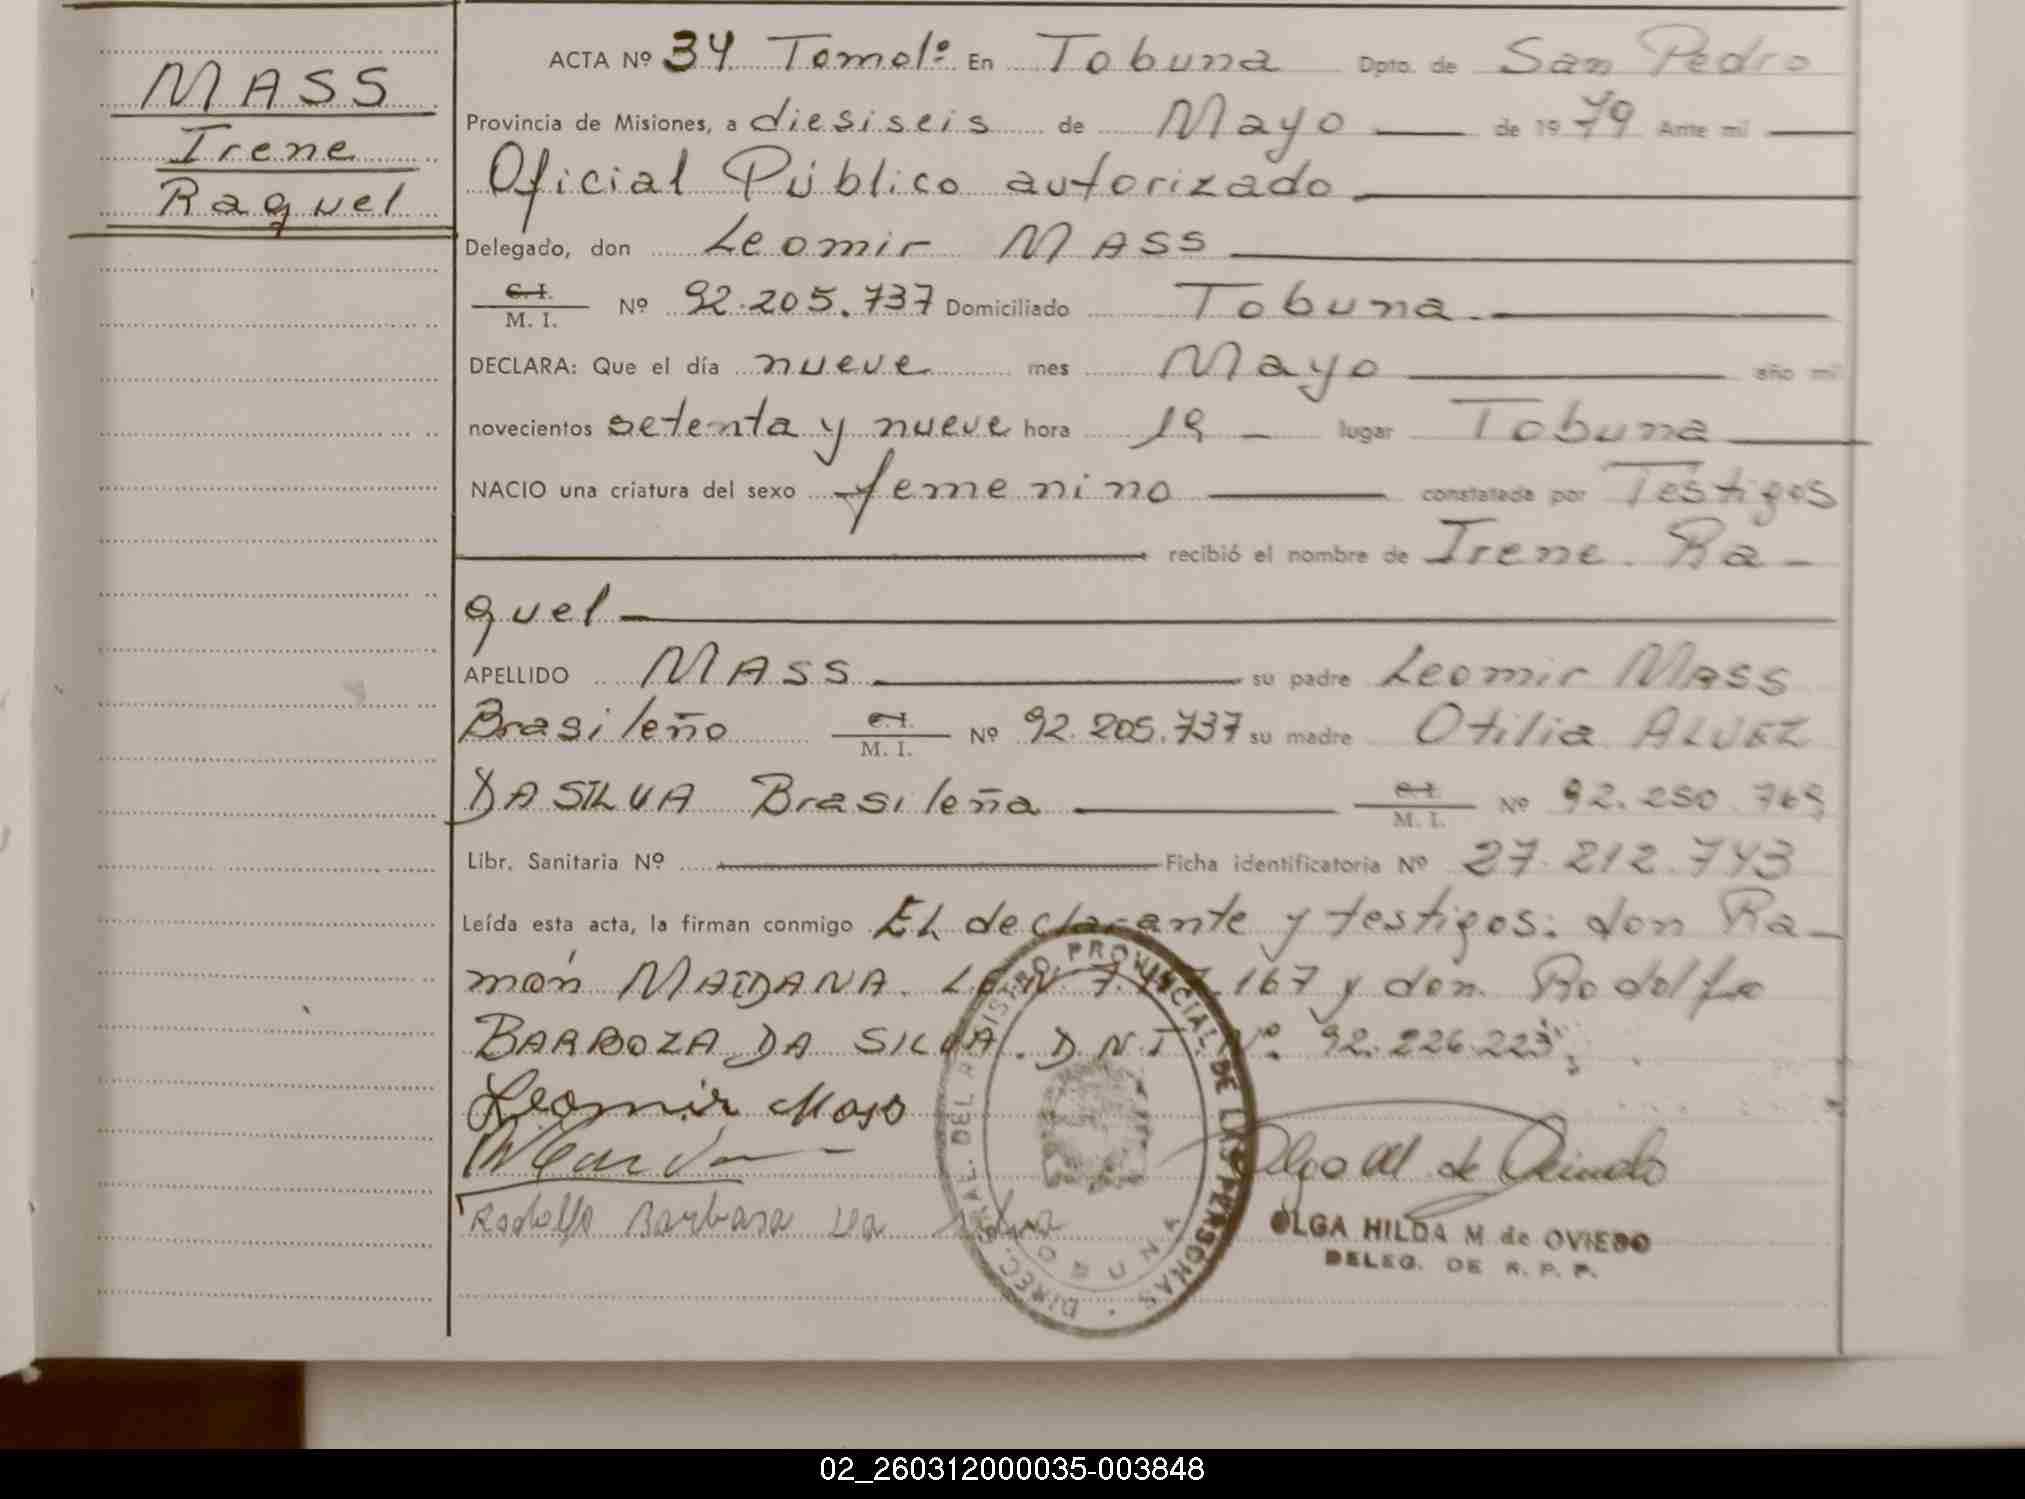 MASS
Irene
Raquel
ACTA Nº 34 Tomo 1º En Tobuna Dpto. de San Pedro
Provincia de Misiones, a diesiseis de Mayo de 1979 Ante mi
Oficial Público autorizado
Delegado, don Leomir MASS
C. I.
M. I. Nº 92.205.737 Domiciliado Tobuna.
DECLARA: Que el día nueve mes Mayo año mil
novecientos setenta y nueve hora 19 lugar Tobuna
NACIO una criatura del sexo femenino constatada por Testigos
recibió el nombre de Irene Ra-
quel
APELLIDO MASS su padre Leomir MASS
Brasileño C. I. M. I. Nº 92.205.737 su madre Otilia ALVEZ
DA SILVA Brasileña C. I. M. I. Nº 92.250.769
Libr. Sanitaria Nº Ficha identificatoria Nº 27.212.743
Leída esta acta, la firman conmigo El declarante y testigos: don Ra-
món MAIDANA. 167 y don Rodolfo
BARBOZA DA SILVA. D.N.I. Nº. 92.226.223
Leomir Mass
Rodolfo Barbosa da Silva
DIREC. GRAL. DEL REGISTRO PROVINCIAL DE LAS PERSONAS
TOBUNA
OLGA HILDA M de OVIEDO
DELEG. DE R. P. P.
02_260312000035-003848